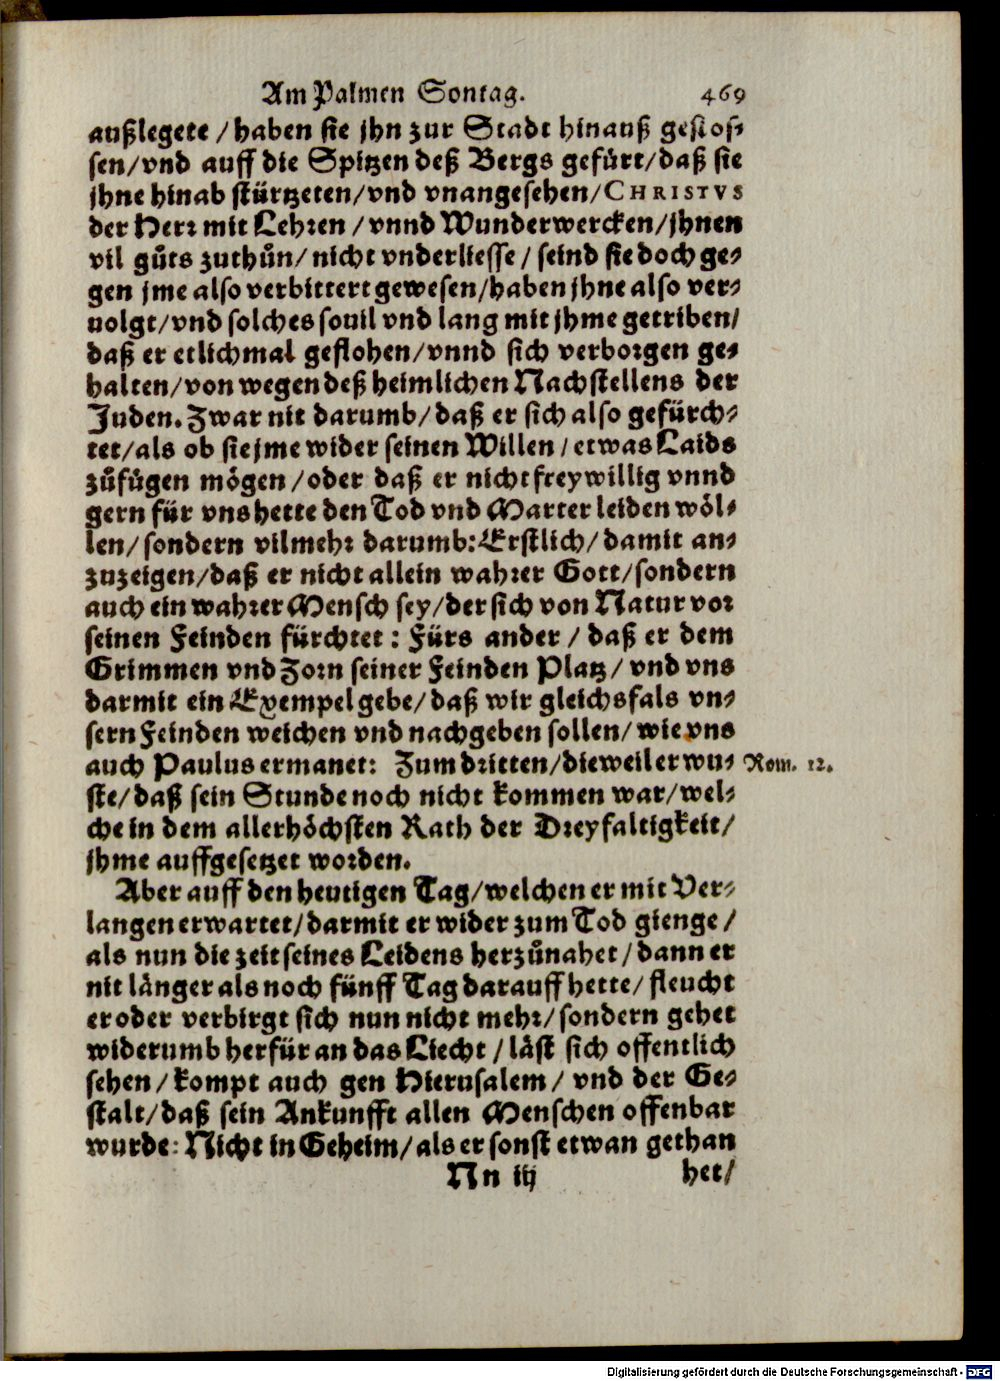 Am Palmen Sontag. 469
außlegete / haben sie jhn zur Stadt hinauß gestos-
sen/vnd auff die Spitzen deß Bergs gefürt/daß sie
jhne hinab stürtzeten/vnd vnangesehen/CHRISTVS
der Herr mit Lehren / vnnd Wunderwercken/jhnen
vil gůts zuthůn/ nicht vnderliesse / seind sie doch ge-
gen jme also verbittert gewesen/haben jhne also ver-
uolgt/vnd solches souil vnd lang mit jhme getriben/
daß er etlichmal geflohen/vnnd sich verborgen ge-
halten/von wegen deß heimlichen Nachstellens der
Juden. Zwar nit darumb/daß er sich also gefürch-
tet/als ob sie jme wider seinen Willen / etwas Laids
zůfügen mögen /oder daß er nicht freywillig vnnd
gern für vns hette den Tod vnd Marter leiden wöl-
len/ sondern vilmehr darumb: Erstlich/ damit an-
zuzeigen/daß er nicht allein wahrer Gott/sondern
auch ein wahrer Mensch sey/der sich von Natur vor
seinen Feinden fürchtet : Fürs ander / daß er dem
Grimmen vnd Zorn seiner Feinden Platz/ vnd vns
darmit ein Exempel gebe/ daß wir gleichsfals vn-
sern Feinden weichen vnd nachgeben sollen/ wie vns
auch Paulus ermanet: Zum dritten/dieweil er wu- Rom. 12.
ste/daß sein Stunde noch nicht kommen war/wel-
che in dem allerhöchsten Rath der Dreyfaltigkeit/
jhme auffgesetzet worden.
Aber auff den heutigen Tag/welchen er mit Ver-
langen erwartet/darmit er wider zum Tod gienge /
als nun die zeit seines Leidens herzůnahet / dann er
nit länger als noch fünff Tag darauff hette/ fleucht
er oder verbirgt sich nun nicht mehr/ sondern gehet
widerumb herfür an das Liecht / läst sich offentlich
sehen / kompt auch gen Hierusalem / vnd der Ge-
stalt/daß sein Ankunfft allen Menschen offenbar
wurde: Nicht in Geheim/als er sonst etwan gethan
Nn iij het/
Digitalisierung gefördert durch die Deutsche Forschungsgemeinschaft - DFG